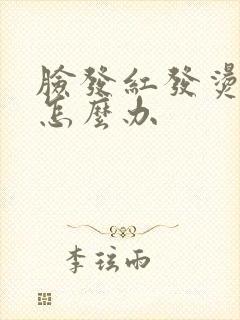 臉發紅發燙
怎麼办
李玹雨